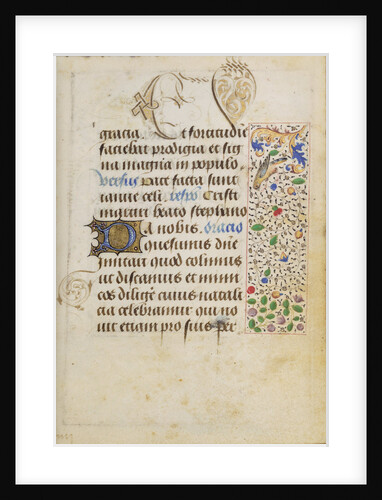 gracia Et fortitudi
faciebat prodigia et sig
na magna in populo
Versus Pate facta sunt
ianue celi. respo Cristi
martiri beato stephano
Da nobis. oracio
quesumus dñe
imitari quod colimus
ut discamus et inimi
cos diligē cuius natali
cia celebramus qui no
uit etiam pro suis per